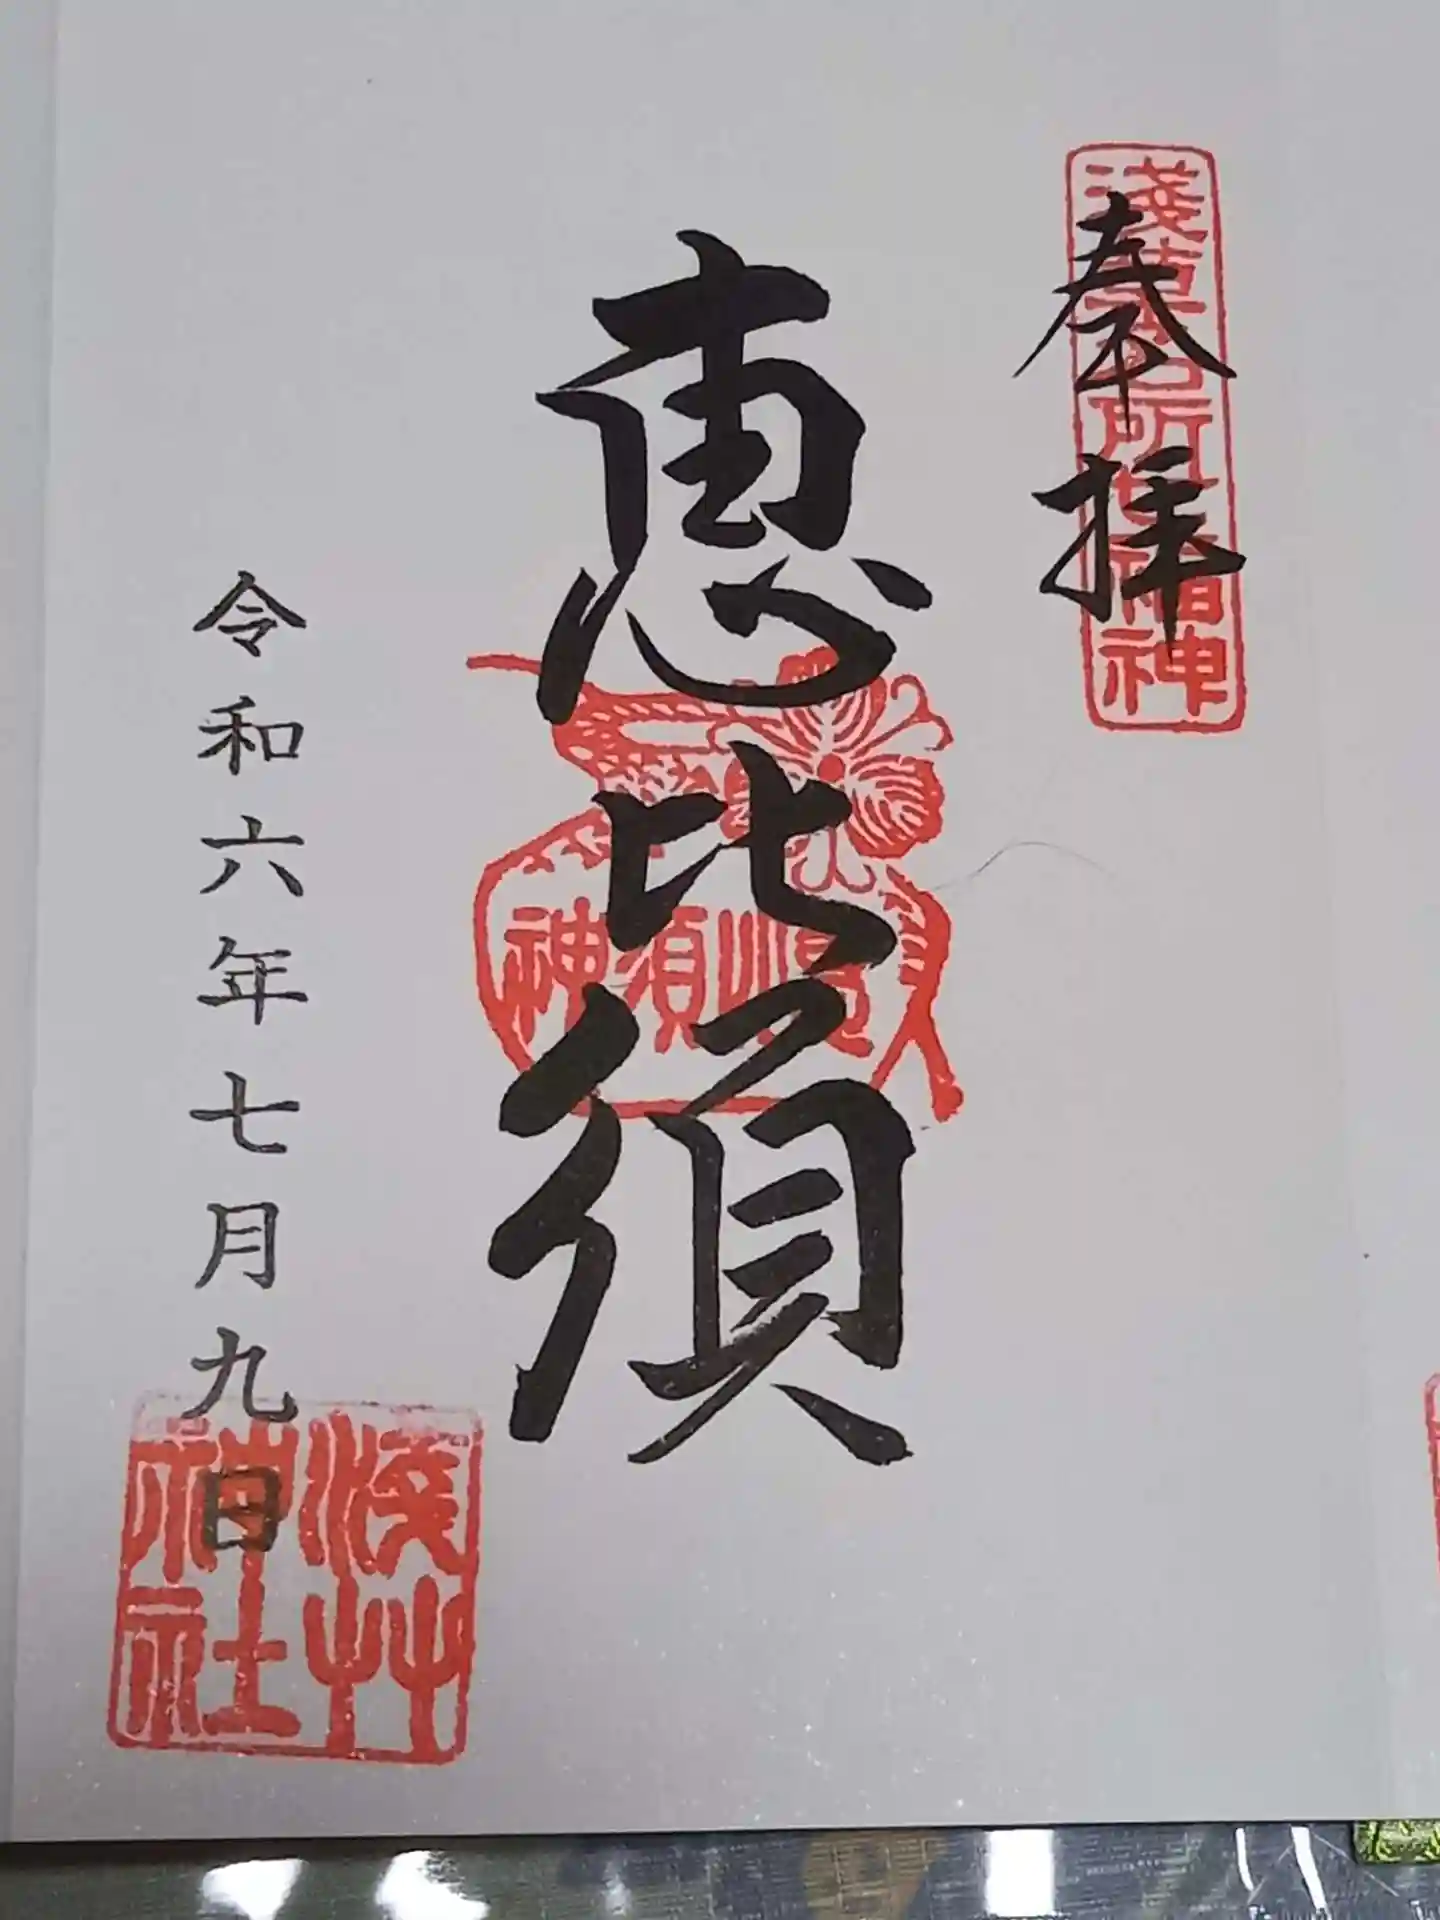 奉拝
淺草名所七福神
恵比須
神須比恵
令和六年七月九日
淺艸
神社